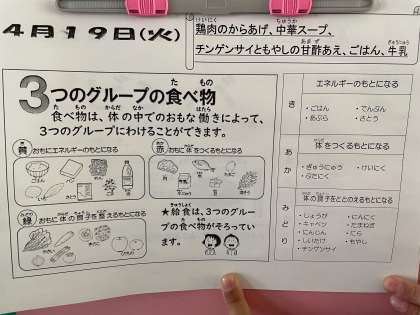 4月19日(火)
鶏肉のからあげ、中華スープ、
チンゲンサイともやしの甘酢あえ、ごはん、牛乳
3つのグループの食べ物
食べ物は、体の中でのおもな働きによって、
3つのグループにわけることができます。
黄 おもにエネルギーのもとになる
赤 おもに体をつくるもとになる
緑 おもに体の調子を整えるもとになる
★給食は、3つのグルー
プの食べ物がそろってい
ます。
き
エネルギーのもとになる
・ごはん ・でんぷん
・あぶら ・さとう
あか
体をつくるもとになる
・ぎゅうにゅう ・けいにく
・ぶたにく
みどり
体の調子をととのえるもとになる
・しょうが ・にんにく
・キャベツ ・たまねぎ
・にんじん ・にら
・しいたけ ・もやし
・チンゲンサイ